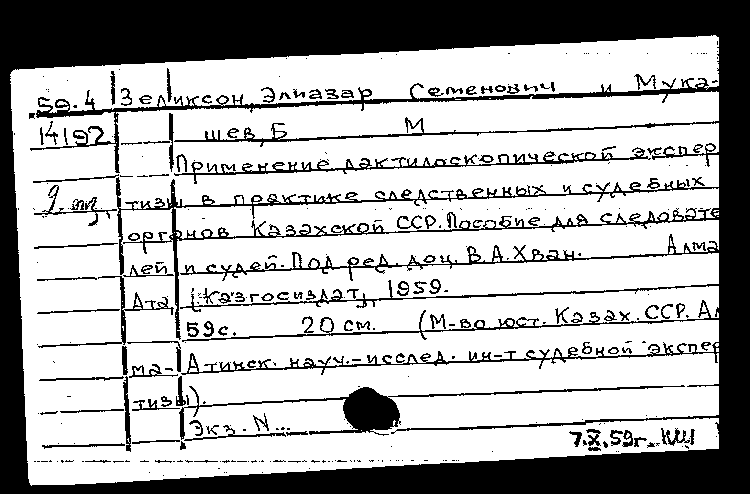 59.4 Зеликсон, Элиазар Семенович и Мука-
14192 шев, Б М
Применение дактилоскопической экспер
тизы в практике следственных и судебных
органов Казахской ССР. Пособие для следовате
лей и судей. Под ред. доц. В.А.Хван. Алма
Ата, [Казгосиздат], 1959.
59с. 20 см. (М-во юст. Казах. ССР. Ал
ма- Атинск. науч.-исслед. ин-т судебной экспер
тизы).
Экз. N...
7.X.59г.